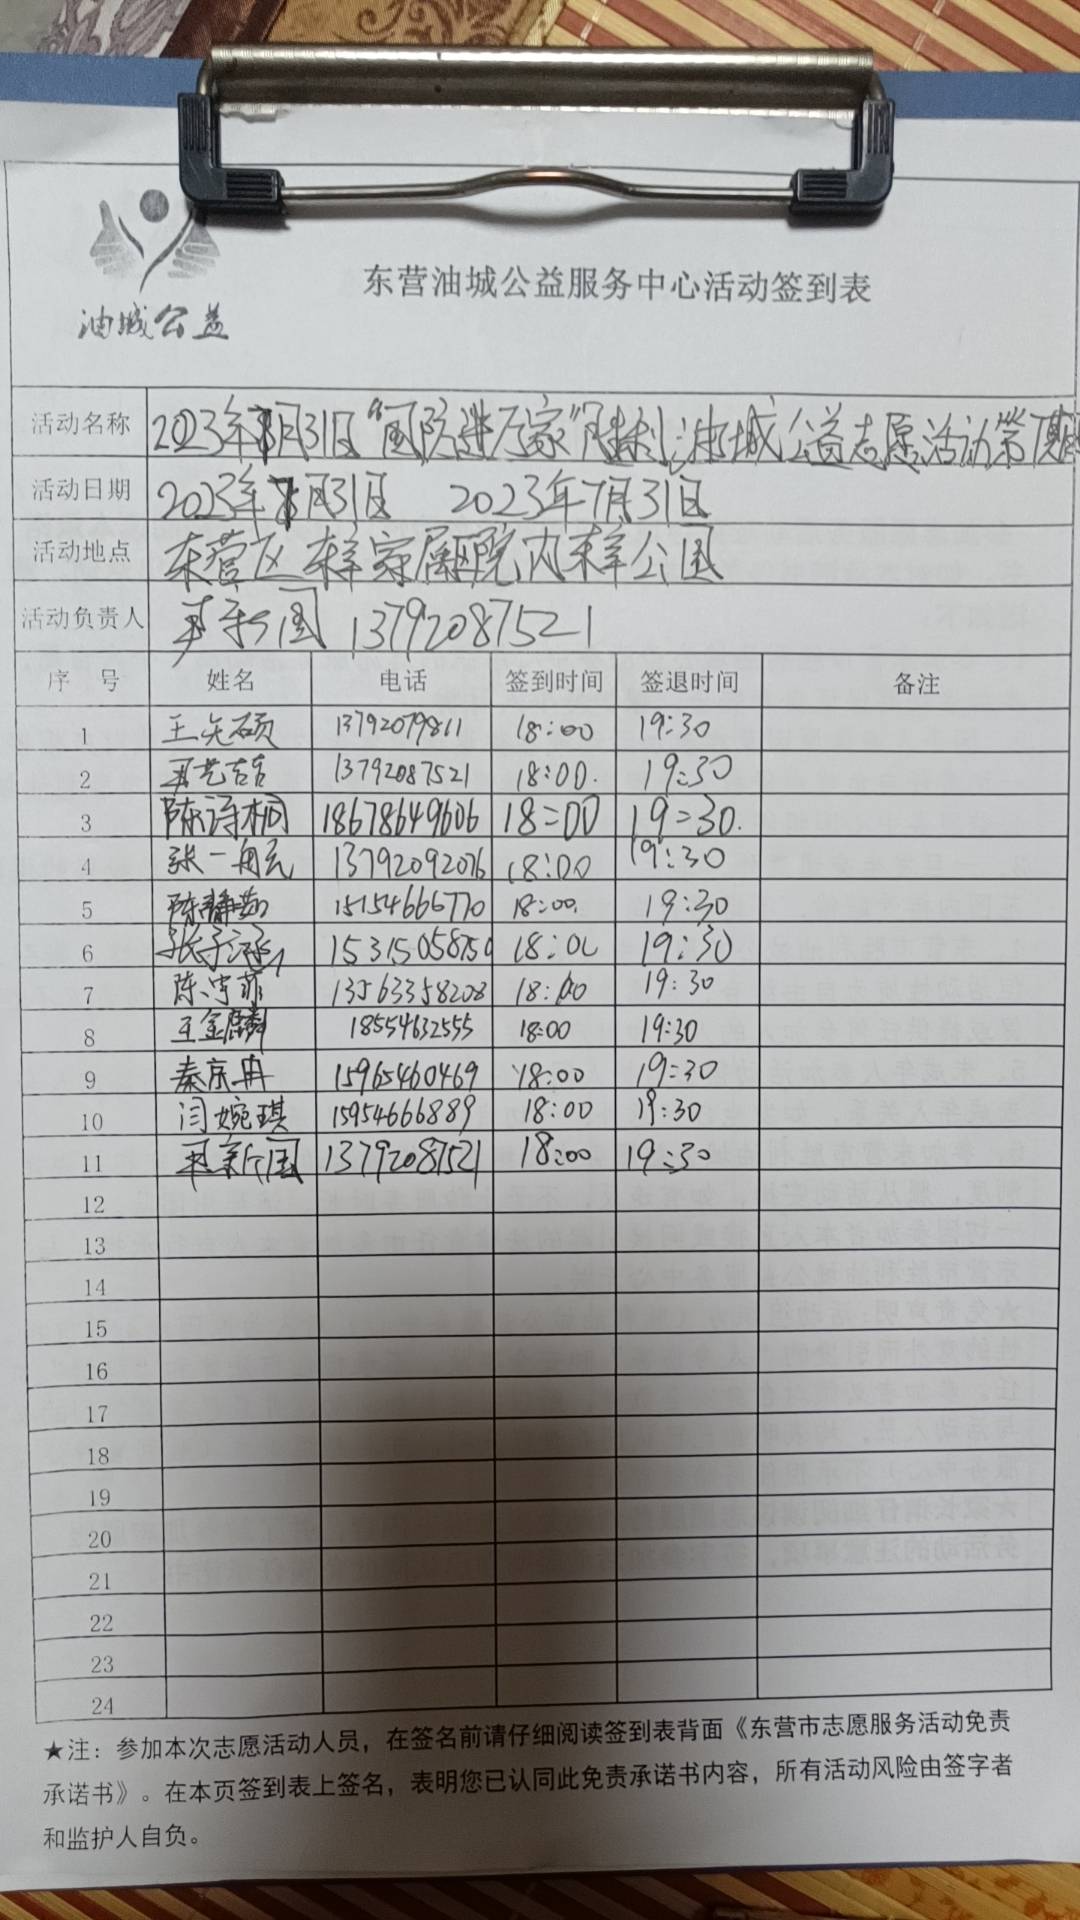 油城公益
东营油城公益服务中心活动签到表
活动名称 2023年7月31日“国防进万家” 油城公益志愿活动第
活动日期 2023年7月31日 2023年7月31日
活动地点 东营区 家属院内 公园
活动负责人 国 13792087521
序 号 姓名 电话 签到时间 签退时间 备注
1 王先硕 13792079811 18:00 19:30
2 13792087521 18:00. 19:30
3 陈诗桐 18678649606 18:00 19:30.
4 张一舟 13792092076 18:00 19:30
5 陈静茹 15154666770 18:00. 19:30
6 张子涵 15315058750 18:00 19:30
7 陈 菲 13563358208 18:00 19:30
8 王金麟 18554632555 18:00 19:30
9 秦京冉 15965460469 18:00 19:30
10 闫婉琪 15954666889 18:00 19:30
11 国 13792087521 18:00 19:30
12
13
14
15
16
17
18
19
20
21
22
23
24
★注：参加本次志愿活动人员，在签名前请仔细阅读签到表背面《东营市志愿服务活动免责
承诺书》。在本页签到表上签名，表明您已认同此免责承诺书内容，所有活动风险由签字者
和监护人自负。